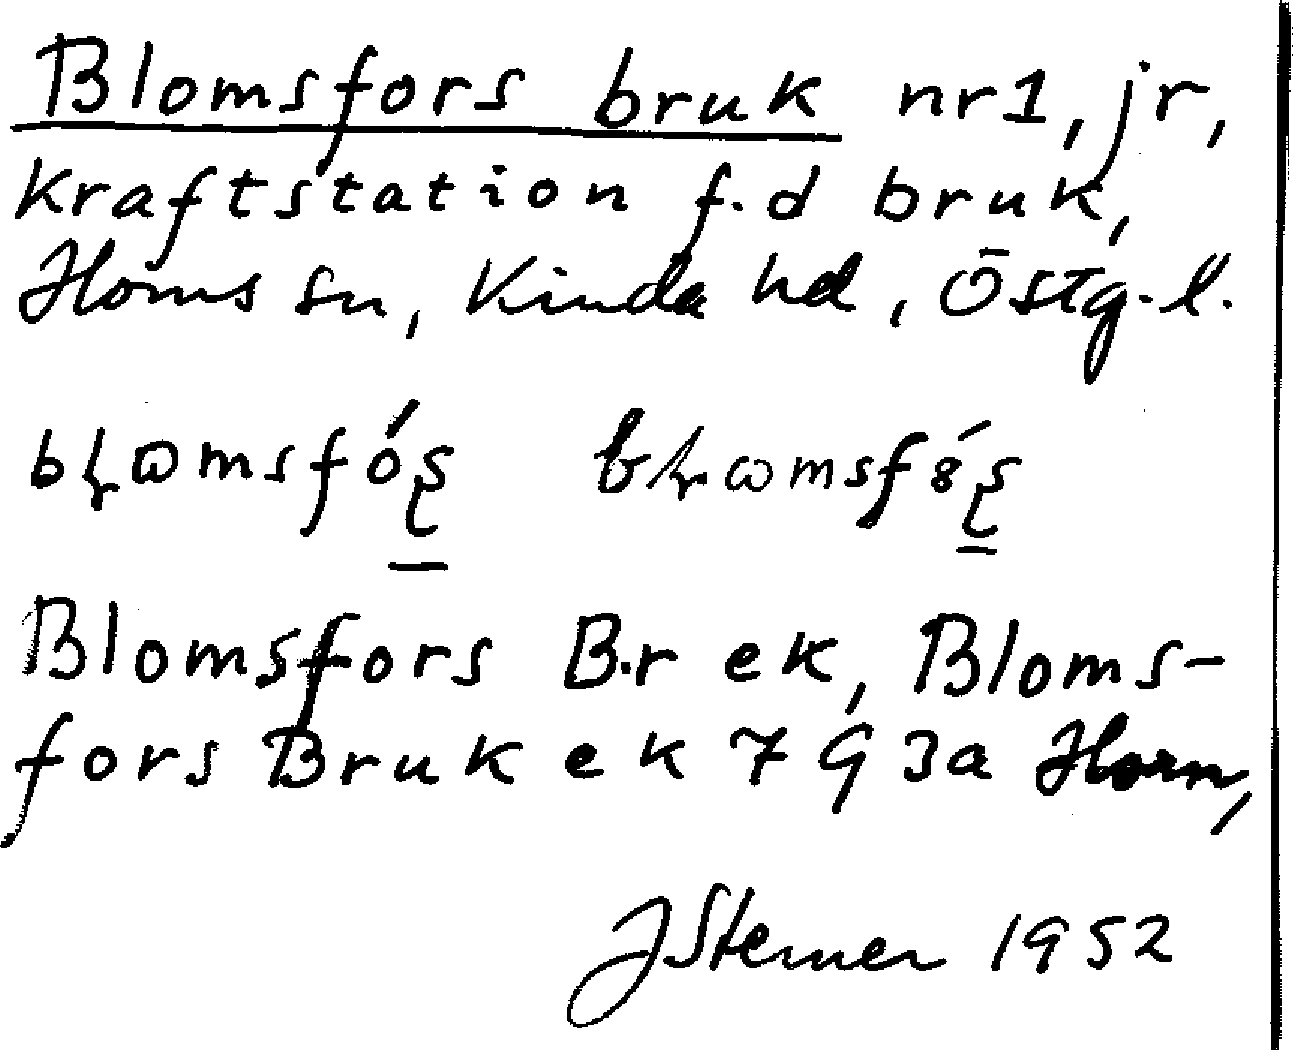 Blomsfors bruk nr1, jr,
kraftstation f.d bruk,
Horns sn, Kinda hd, Östg.-l.
Blomsfors B.r ek, Bloms-
fors Bruk ek 793a Horn,
JSterner 1952